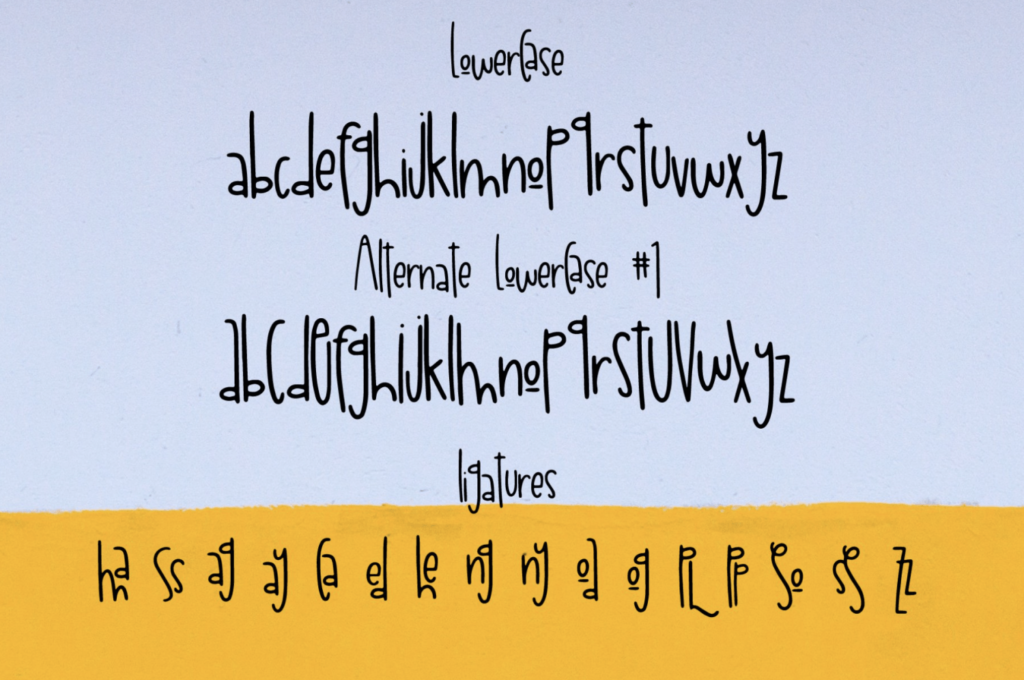 LowerCase
abcdefghijklmnopqrstuvwxyz
Alternate LowerCase #1
abcdefghijklmnopqrstuvwxyz
ligatures
ha ss ag ay ca ed he ng ny od og pl pp so sp zz